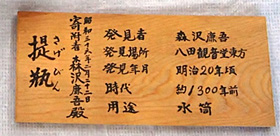 提瓶
さげびん
昭和三十八年二月二十二日
寄附者 森沢康吾殿
発見者 森沢康吾
発見場所 八田観音堂東方
発見年月 明治20年頃
時代 約1300年前
用途 水筒